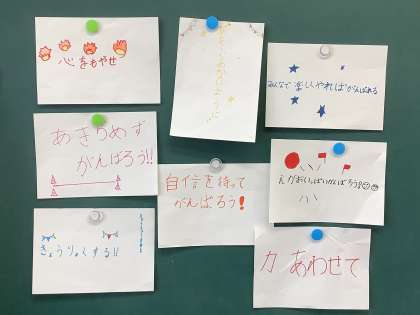 心をもやせ
あきらめず
がんばろう!!
きょうりょくする!!
自信を持って
がんばろう!
みんなで楽しくやればがんばれる
えがおいっぱいがんばろう!!
力あわせて